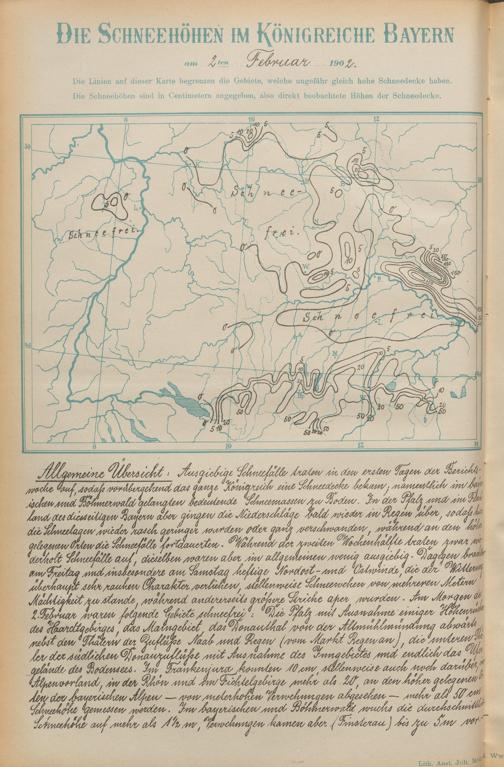 DIE SCHNEEHÖHEN IM KÖNIGREICHE BAYERN
am 2ten Februar 1902.
Die Linien auf dieser Karte begrenzen die Gebiete, welche ungefähr gleich hohe Schneedecke haben.
Die Schneehöhen sind in Centimetern angegeben, also direkt beobachtete Höhen der Schneedecke.
Schnee-
Schneefrei.
frei.
Schneefrei
Allgemeine Übersicht: Ausgiebige Schneefälle traten in den ersten Tagen der Berichts-
woche auf, sodaß vorübergehend das ganze Königreich eine Schneedecke bekam, namentlich im bay-
ischen und Böhmerwald gelangten bedeutende Schneemassen zu Boden. In der Pfalz und im
land des diesseitigen Bayern aber gingen die Niederschläge bald wieder in Regen über, sodaß
die Schneelagen wieder rasch geringer wurden oder ganz verschwanden, während an den
gelegenen Orten die Schneefälle fortdauerten. Während der zweiten Wochenhälfte traten zwar
derholt Schneefälle auf, dieselben waren aber im allgemeinen wenig ausgiebig. Dagegen
am Freitag und insbesondere am Samstag heftige Nordost- und Ostwinde, die der Witterung
überhaupt sehr rauhen Charakter verliehen, stellenweise Schneewehen von mehreren Metern
Mächtigkeit zu stande, während andererseits größere Striche aper wurden. Am Morgen des
2. Februar waren folgende Gebiete schneefrei: Die Pfalz mit Ausnahme einiger
des Haardtgebirges, das Maingebiet, das Donauthal von der Altmühlmündung abwärts
nebst den Thälern der Zuflüsse Naab und Regen (vom Markt Regen an), die unteren
ler der südlichen Donauzuflüsse mit Ausnahme des Inngebietes und endlich das Ufer-
gelände des Bodensees. Im Frankenjura konnten 10 cm, stellenweise auch noch darüber,
Alpenvorland, in der Rhön und im Fichtelgebirge mehr als 20, an den höher gelegenen
ten der bayerischen Alpen — von meterhohen Verwehungen abgesehen — mehr als 50 cm
Schneehöhe gemessen werden. Im bayerischen und Böhmerwald wuchs die durchschnittliche
Schneehöhe auf mehr als 1½ m, Verwehungen kamen aber (Finsterau) bis zu 5 m vor.
Lith. Anst. Jul.